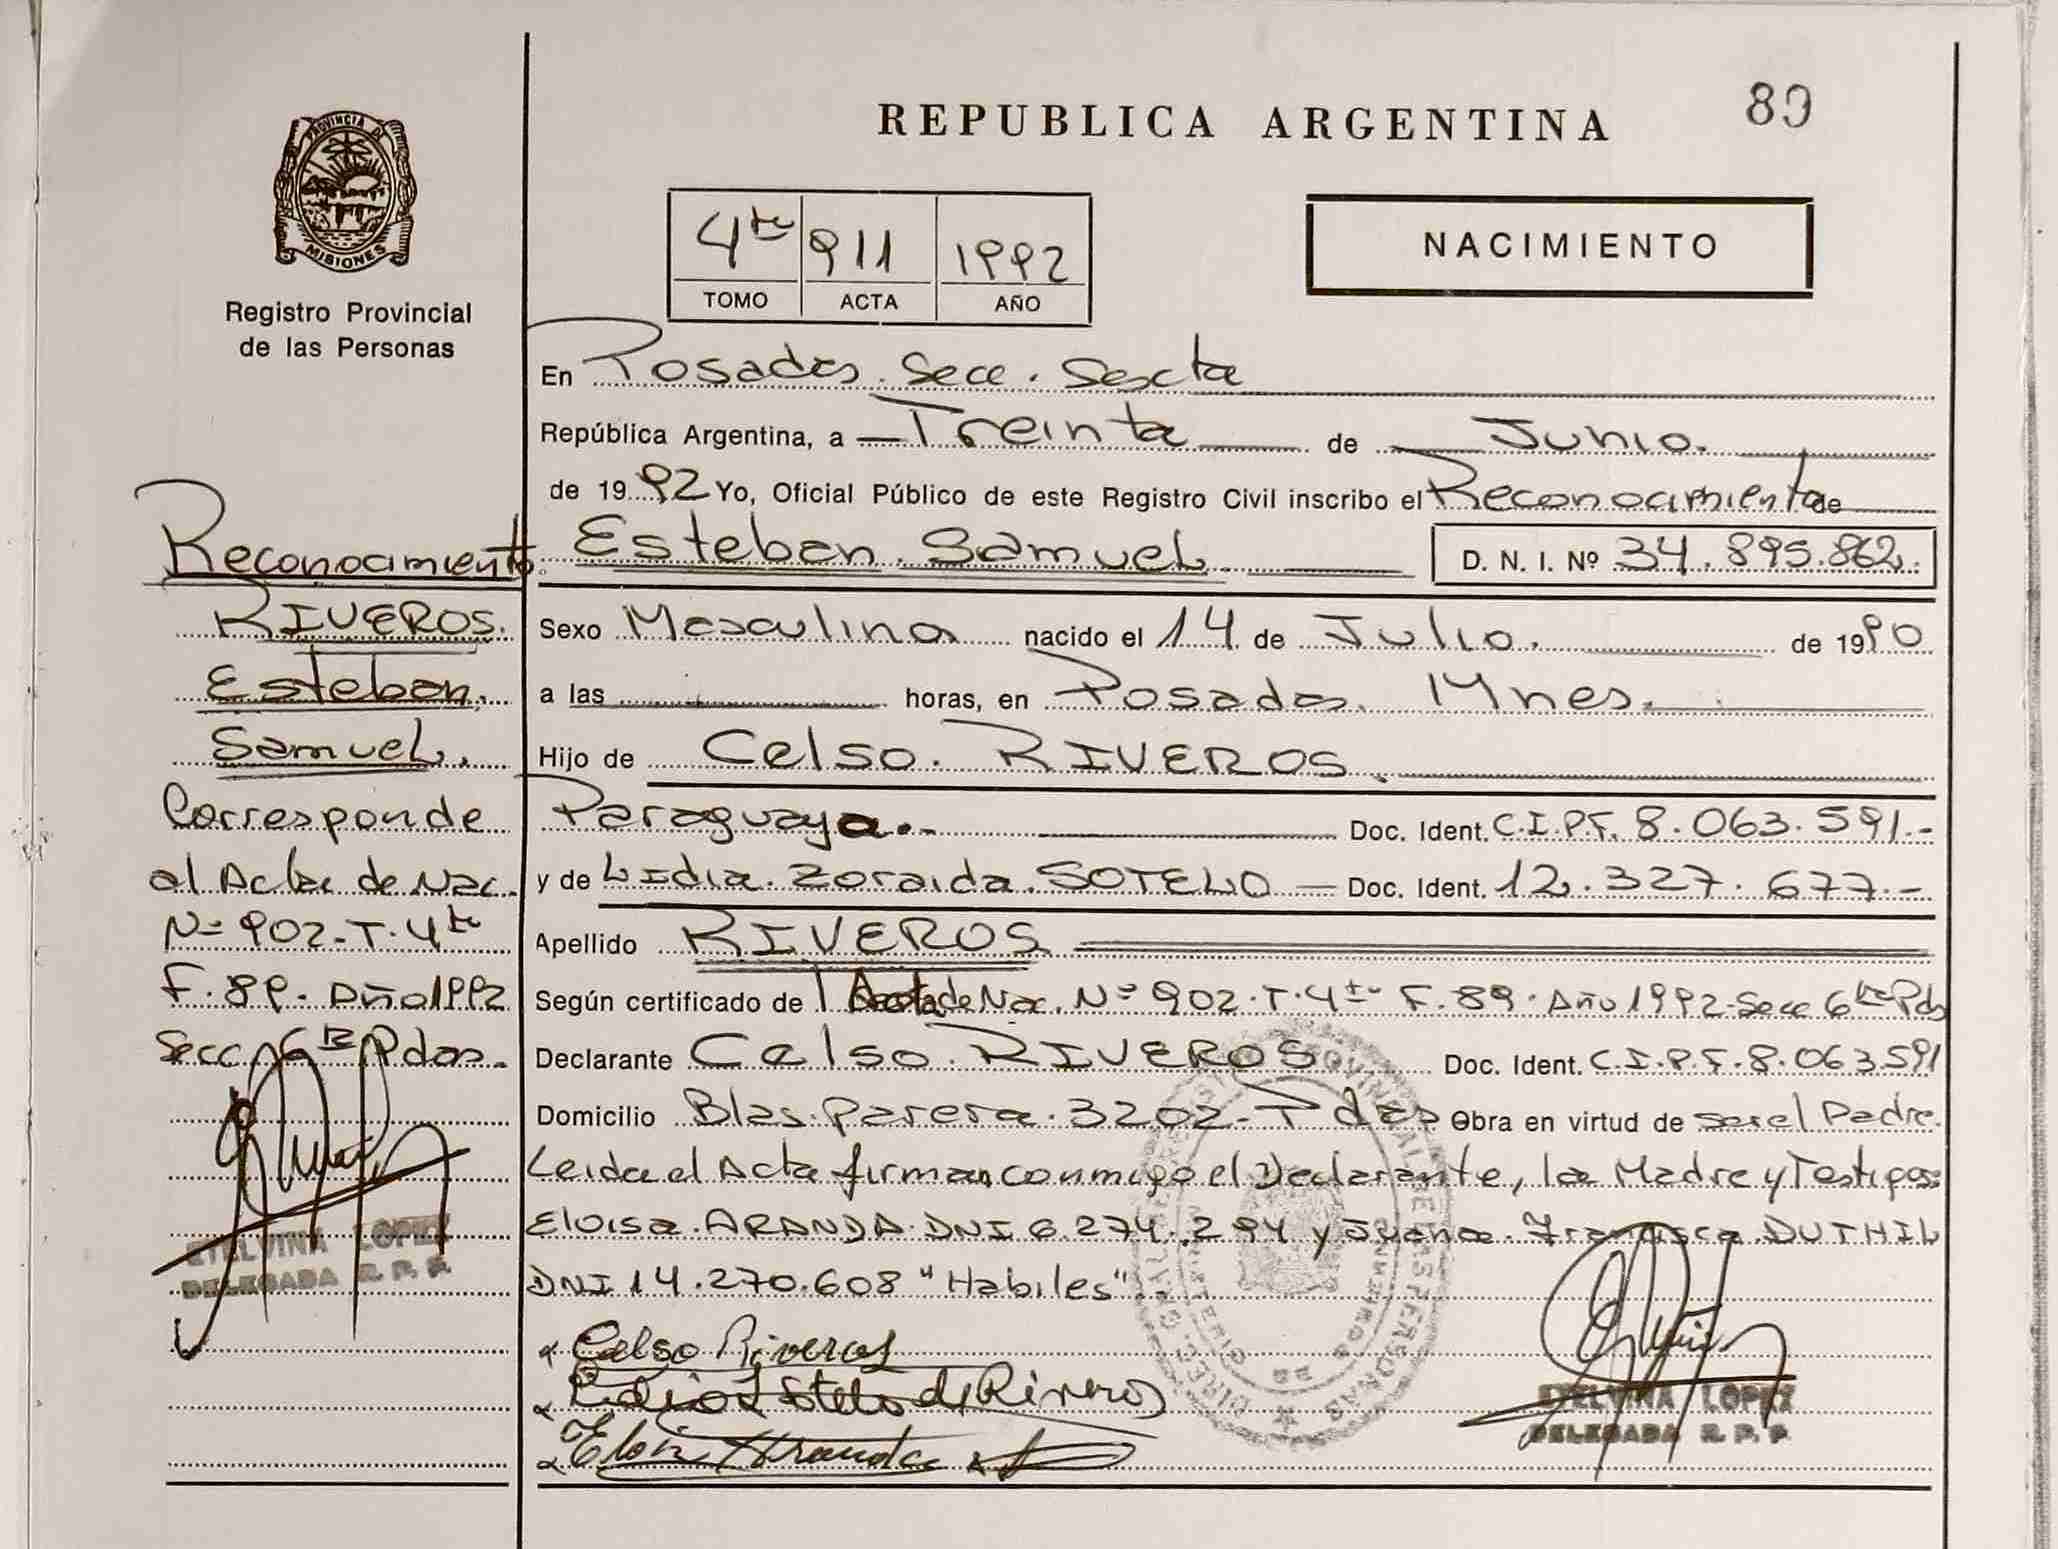 89
REPUBLICA ARGENTINA
PROVINCIA DE
MISIONES
Registro Provincial
de las Personas
4to 911 1992
TOMO ACTA AÑO
NACIMIENTO
En Posadas. Secc. Sexta
República Argentina, a Treinta de Junio.
de 1992 Yo, Oficial Público de este Registro Civil inscribo el Reconocimiento de
Esteban Samuel D. N. I. Nº 34.895.862.
Sexo Masculino nacido el 14 de Julio. de 1990
a las horas, en Posadas. Mnes.
Hijo de Celso. RIVEROS.
Paraguaya.- Doc. Ident. C.I.P.F. 8.063.591.-
y de Lidia. Zoraida. SOTELO - Doc. Ident. 12.327.677.-
Apellido RIVEROS
Según certificado de Acta de Nac. Nº 902.T.4to F.89. Año 1992-Secc 6ta Pdas
Declarante Celso. RIVEROS Doc. Ident. C.I.P.F.8.063.591
Domicilio Blas. Parera. 3202-Pdas Obra en virtud de ser el Padre.
Leida el Acta firman conmigo el Declarante, la Madre y Testigos:
Eloisa. ARANDA. DNI 6.274.294 y Juana. Francisca. DUTHIL
DNI 14.270.608 "Habiles".
Celso Riveros
Sotelo de Riveros
Aranda
ETELVINA LOPEZ
DELEGADA R. P. P.
Reconocimiento.
RIVEROS.
Esteban.
Samuel.
Corresponde
al Acta de Nac.
Nº 902-T.4to
F.89. Año 1992
Secc 6ta Pdas.
ETELVINA LOPEZ
DELEGADA R. P. P.